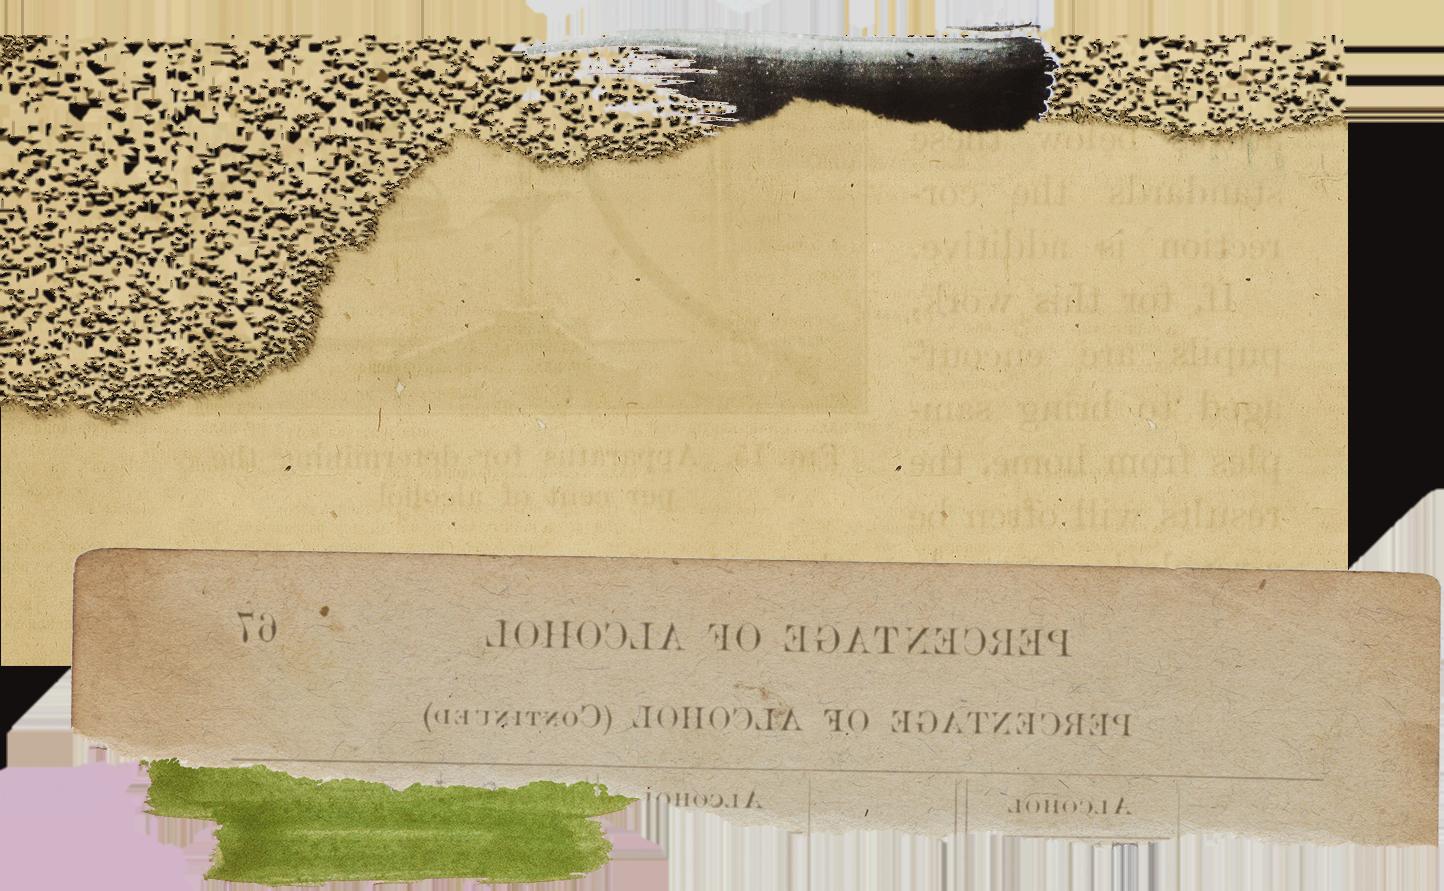 below these
standards the cor-
rection is additive.
If, for this work,
pupils are encour-
aged to bring sam-
ples from home, the
results will often be
Fig. 15. Apparatus for determining the
per cent of alcohol
PERCENTAGE OF ALCOHOL 67
PERCENTAGE OF ALCOHOL (Continued)
Alcohol Alcohol